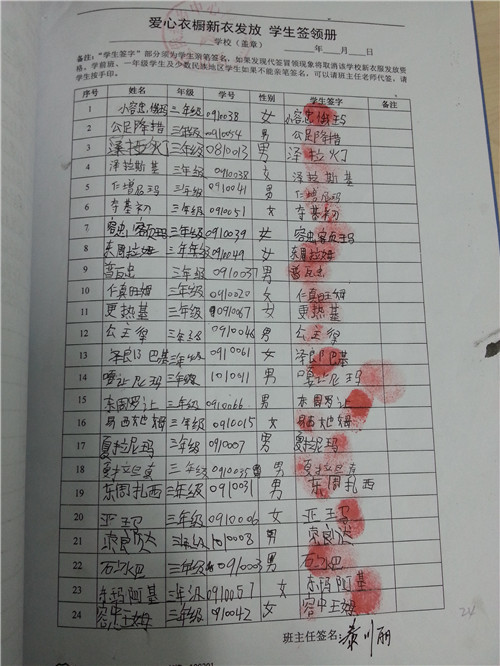 爱心衣橱新衣发放 学生签领册
学校（盖章） 年 月 日
备注：“学生签字”部分须为学生亲笔签名，如果发现代签冒领现象将取消该学校新衣服发放资
格，学前班、一年级学生及少数民族地区学生如果不能亲笔签名，可以请班主任老师代签，请
学生按手印。
序号 姓名 年级 学号 性别 学生签字 备注
1 三年级 0910038 女
2 公足降措 三年级 0910054 男 公足降措
3 泽拉火丁 三年级 0810013 男 泽拉火丁
4 泽拉斯基 三年级 0910038 女 泽拉斯基
5 仁增尼玛 三年级 0910041 男 仁增尼玛
6 夺基初 三年级 0910051 女 夺基初
7 三年级 0910039 女
8 东周拉姆 三年级 0910049 女 东周拉姆
9 普瓦忠 三年级 0910037 男 普瓦忠
10 仁真旺姆 三年级 0910020 女 仁真旺姆
11 更热基 三年级 0910067 女 更热基
12 三年级 0910046 男
13 三年级 0910061 女
14 嘎让尼玛 三年级 1010011 男 嘎让尼玛
15 东周罗让 三年级 0910066 男 东周罗让
16 三年级 0910015 女
17 夏拉尼玛 三年级 091007 男 夏拉尼玛
18 三年级 0910035 男
19 东周扎西 三年级 0910031 男 东周扎西
20 亚玛 三年级 0910006 女 亚玛
21 三年级 1010008 男
22 三年级 0910003 男
23 东玛阿基 三年级 0910057 女 东玛阿基
24 三年级 0910042 女
24
班主任签名：